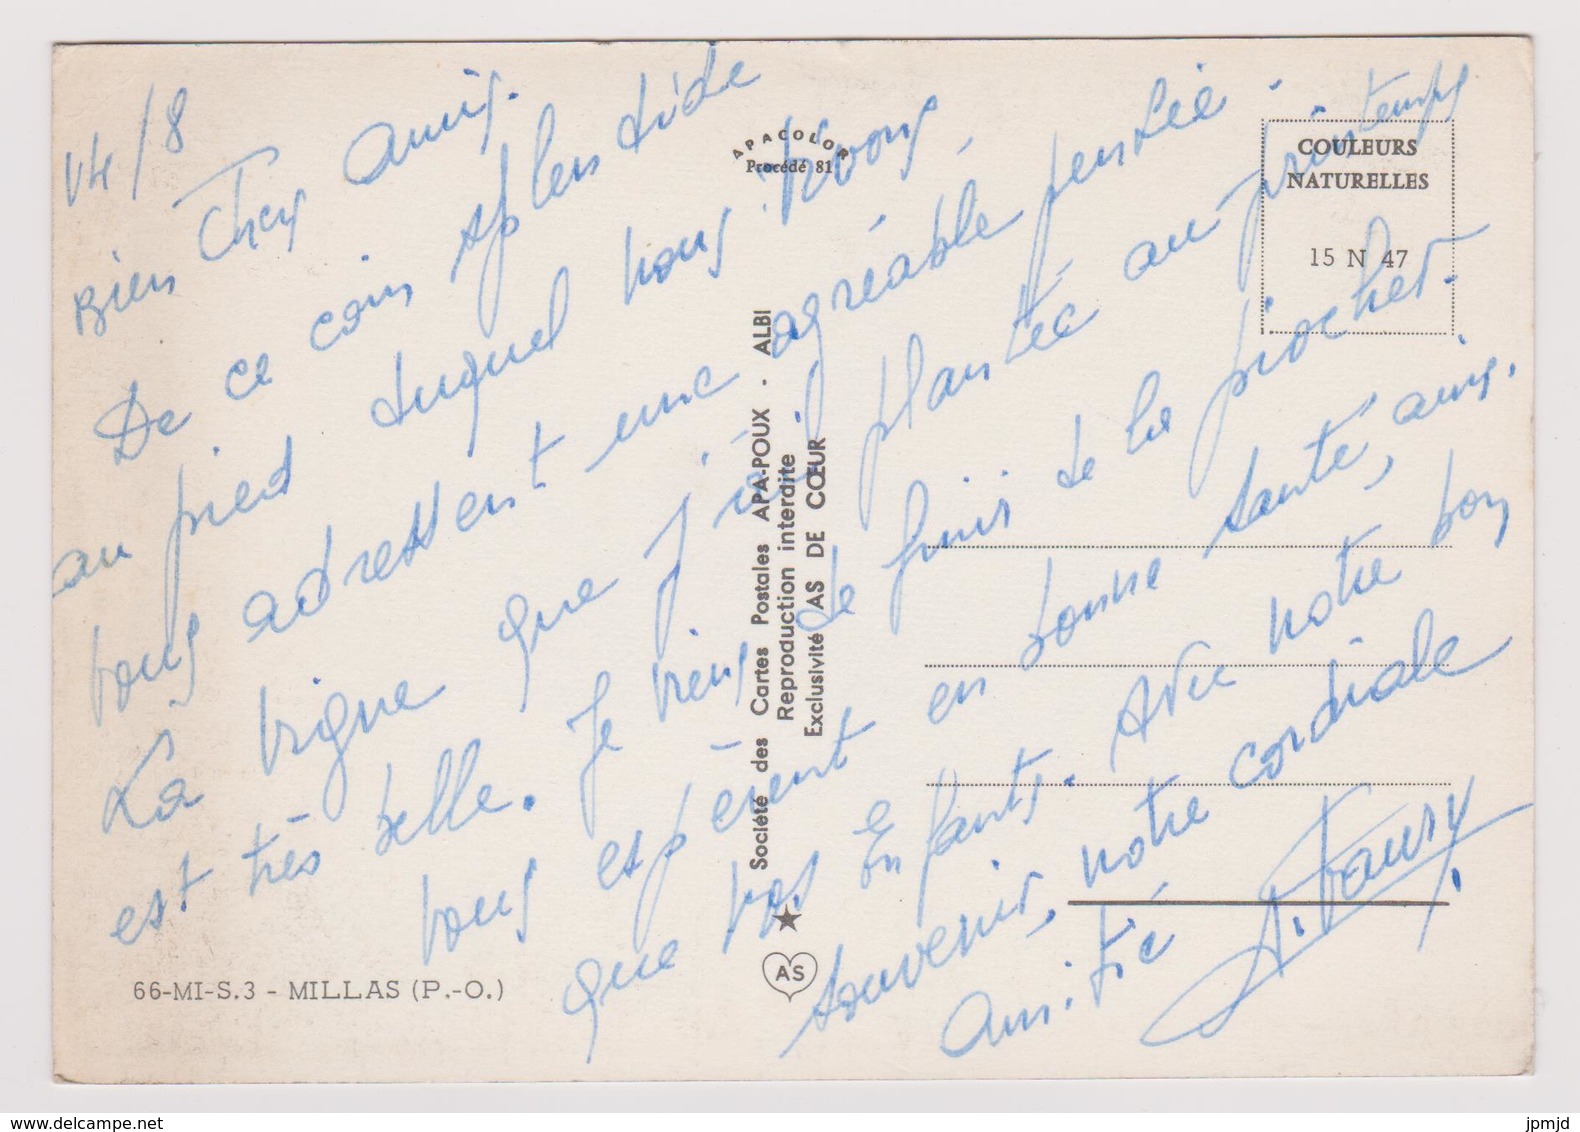 14/8
Bien Chers Amis.
De ce coin splendide
au pied duquel nous trouvons,
vous adressent une agréable pensée.
La vigne que j'ai plantée au printemps
est très belle. Je viens de finir de la piocher.
vous espèrent en bonne santé, ainsi
que vos Enfants. Avec notre bon
souvenir, notre cordiale
amitié
A. Faury
APACOLOR
Procédé 81
COULEURS
NATURELLES
15 N 47
Société des Cartes Postales APA-POUX - ALBI
Reproduction interdite
Exclusivité AS DE CŒUR
AS
66-MI-S.3 - MILLAS (P.-O.)
www.delcampe.net
jpmjd